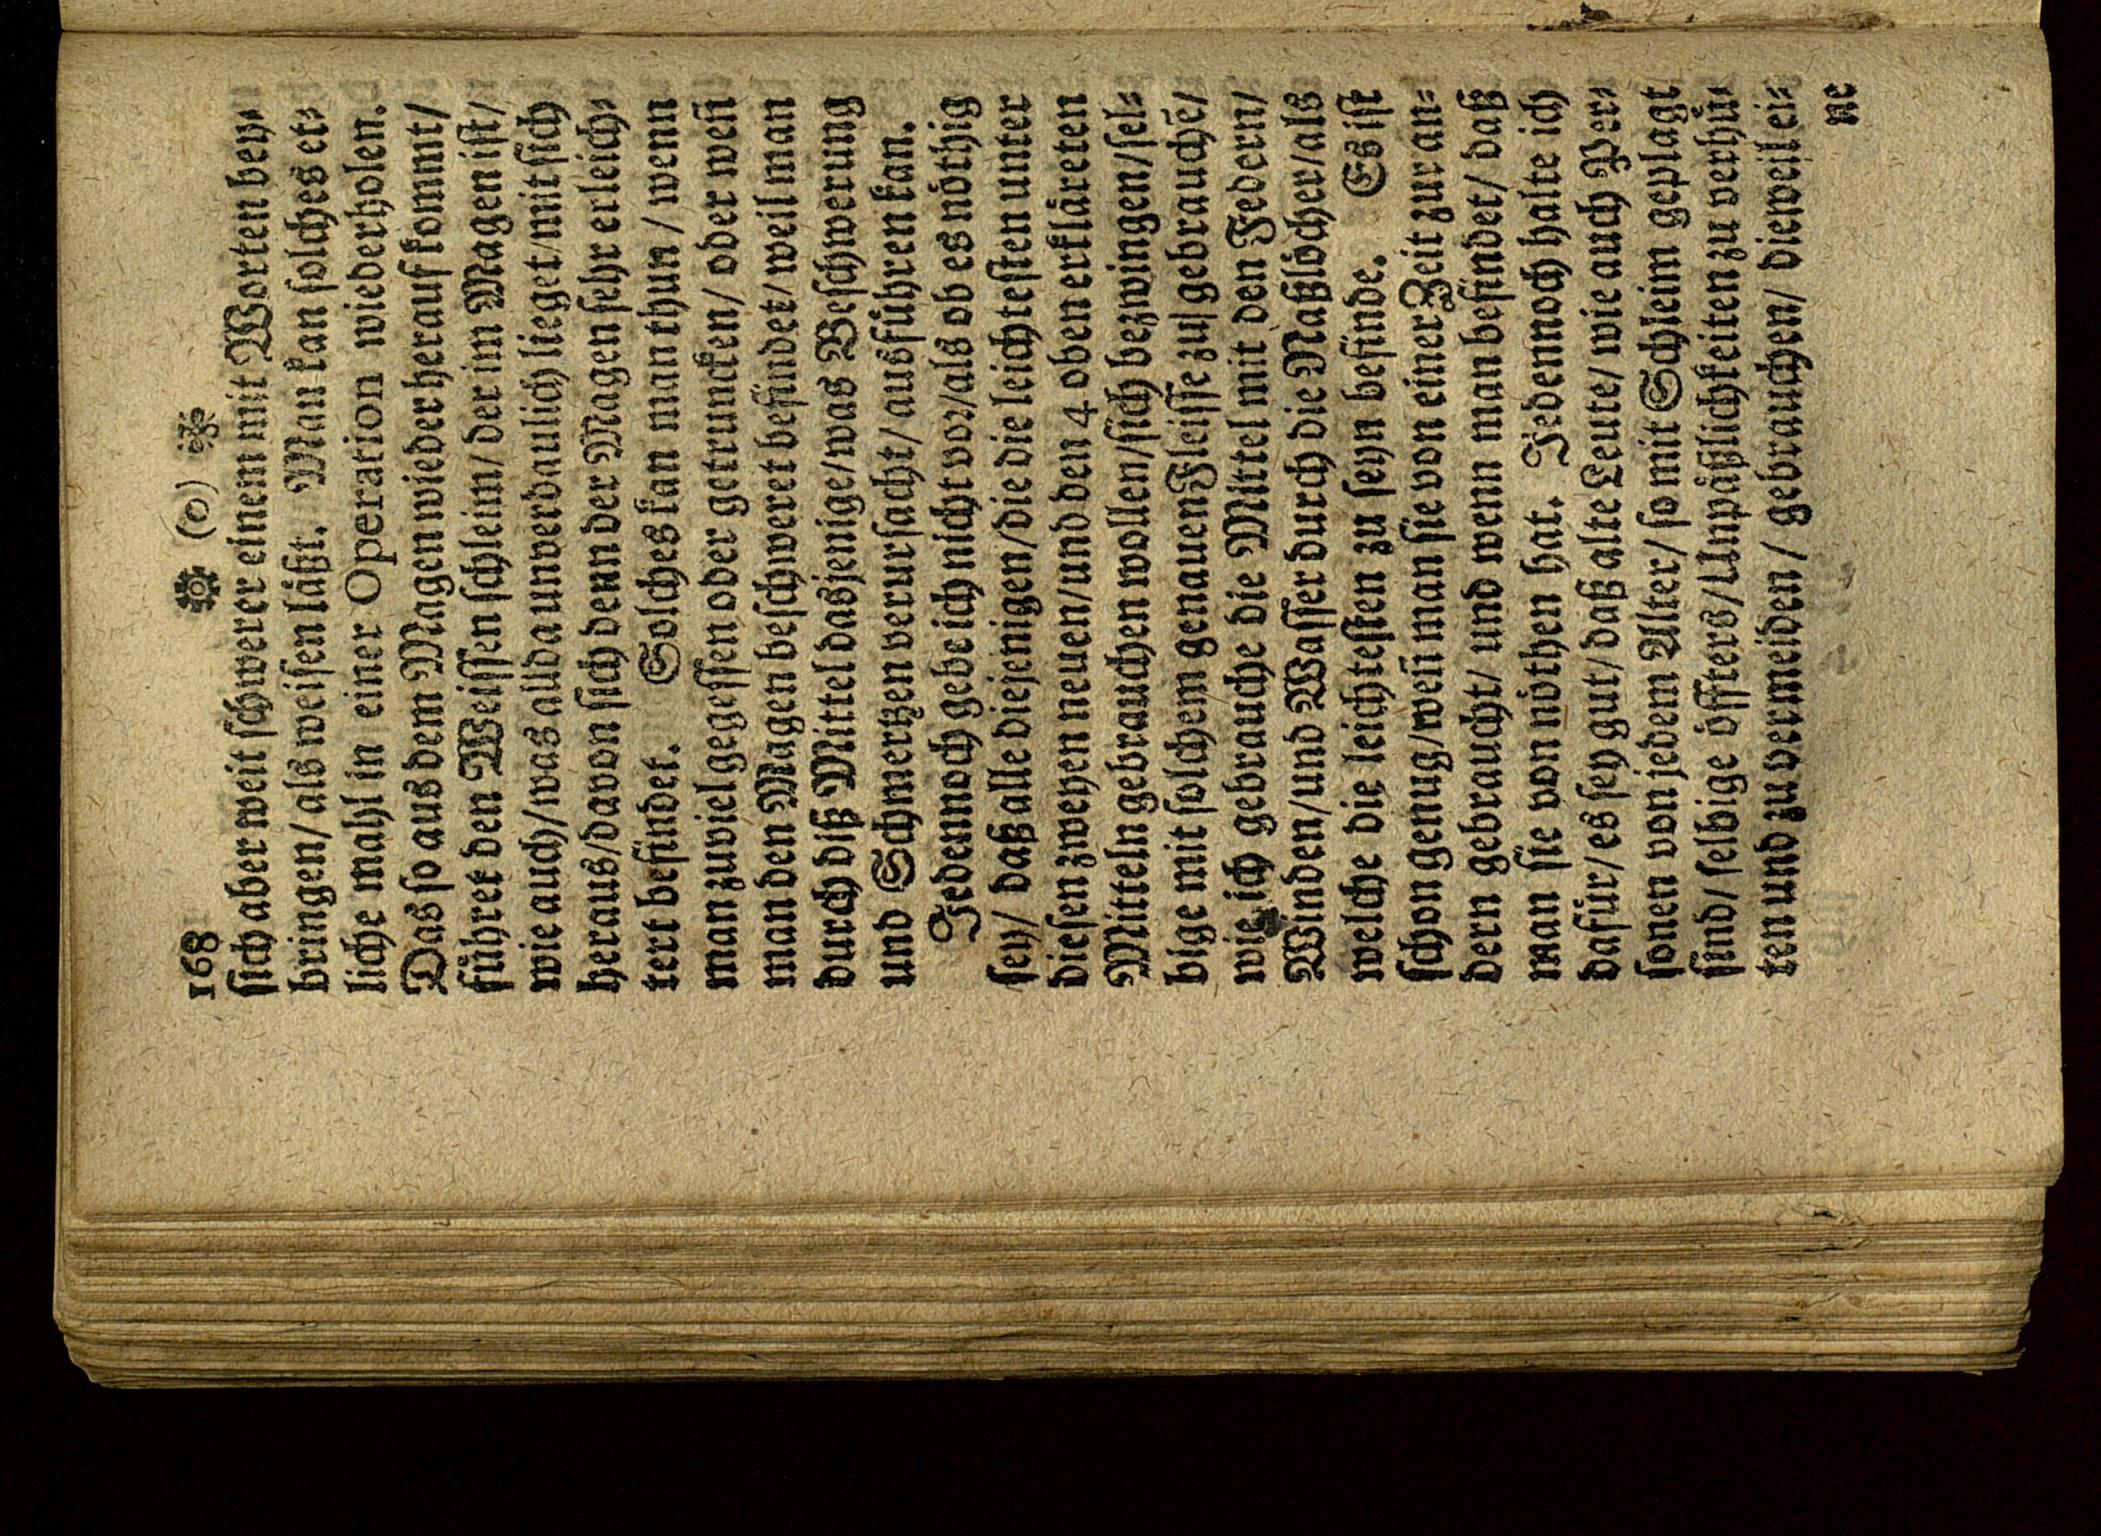 168 ❁ (o) ❁
sich aber weit schwerer einem mit Worten bey⸗
bringen/ als weisen läßt. Man kan solches et⸗
liche mahl in einer Operation wiederholen.
Das so aus dem Magen wieder herauf kommt/
führet den Weissen schleim/ der im Magen ist/
wie auch/was allda unverdaulich lieget/mit sich
heraus/davon sich denn der Magen sehr erleich⸗
tert befindet. Solches kan man thun/ wenn
man zuviel gegessen oder getruncken/ oder weñ
man den Magen beschweret befindet/weil man
durch diß Mittel dasjenige/was Beschwerung
und Schmertzen verursacht/ ausführen kan.
Jedennoch gebe ich nicht vor/als ob es nöthig
sey/ daß alle diejenigen/die die leichtesten unter
diesen zweyen neuen/und den 4 oben erkläreten
Mitteln gebrauchen wollen/sich bezwingen/sel⸗
bige mit solchem genauen Fleisse zu gebrauchē/
wie ich gebrauche die Mittel mit den Federn/
Winden/und Wasser durch die Naßlöcher/als
welche die leichtesten zu seyn befinde. Es ist
schon genug/weñ man sie von einer Zeit zur an⸗
dern gebraucht/ und wenn man befindet/ daß
man sie von nöthen hat. Jedennoch halte ich
dafür/es sey gut/daß alte Leute/ wie auch Per⸗
sonen von jedem Alter/ so mit Schleim geplagt
sind/ selbige öffters/Unpäßlichkeiten zu verhü⸗
ten und zu vermeiden/ gebrauchen/ dieweil ei⸗
ne